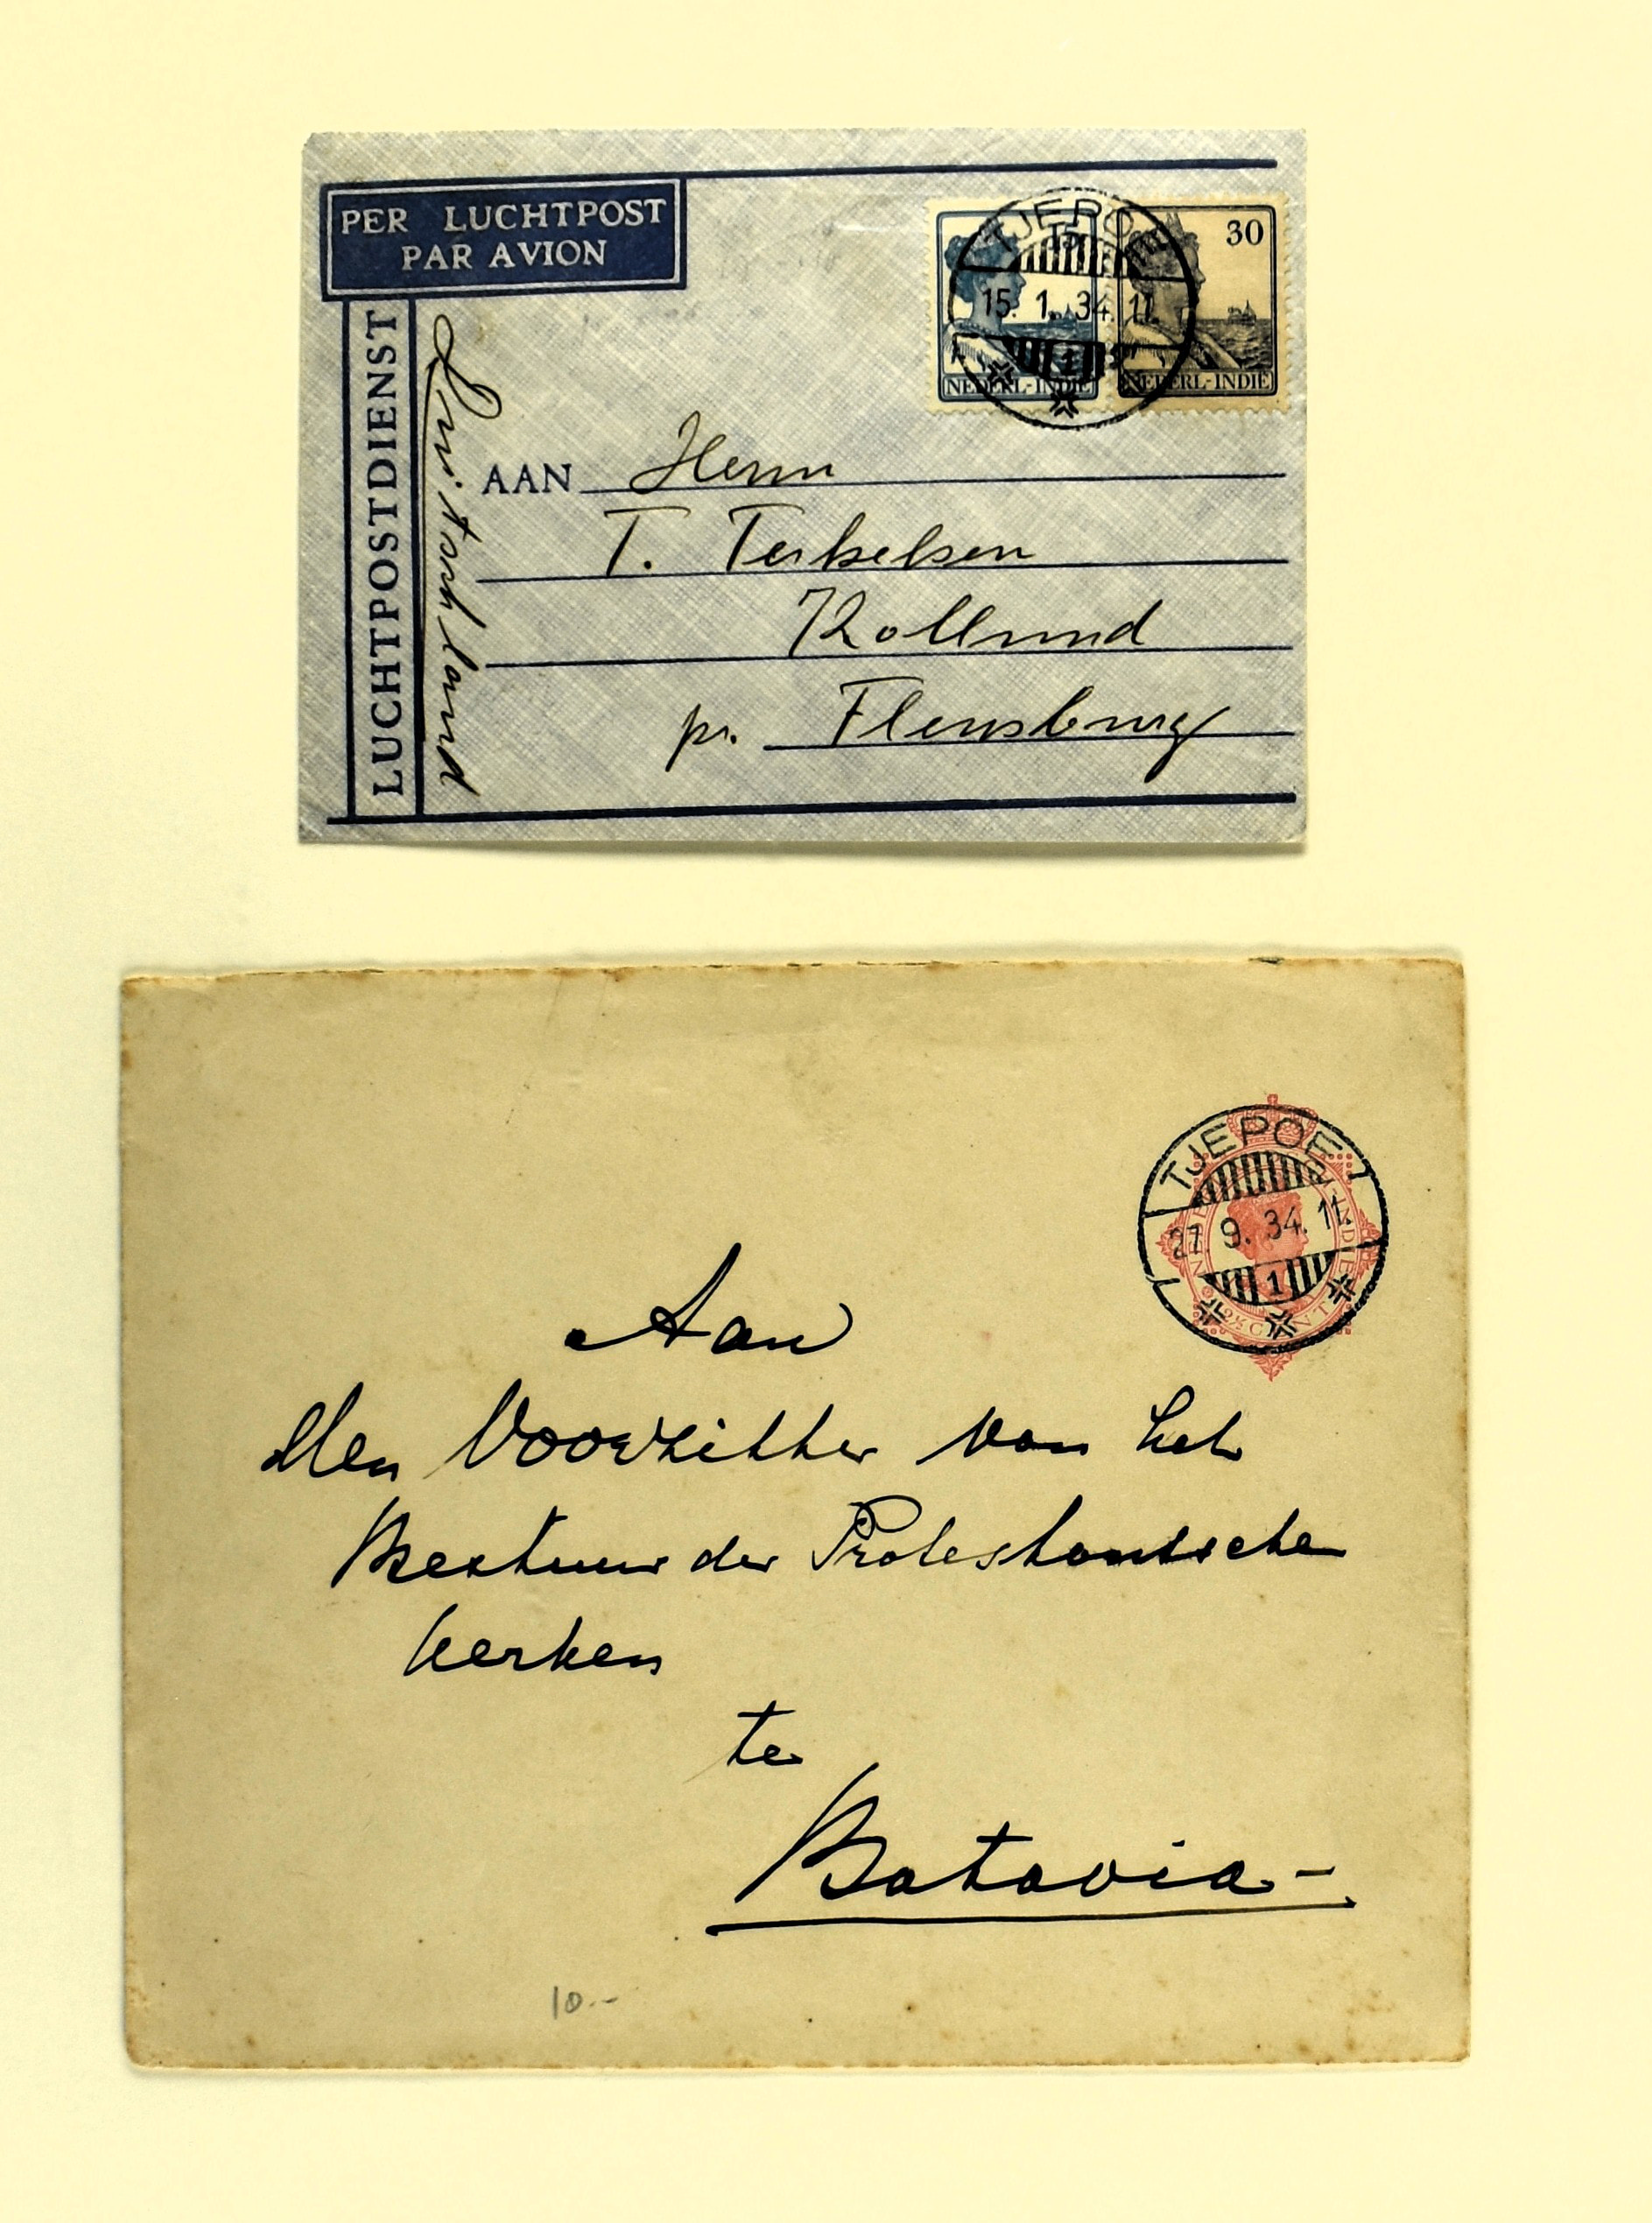 PER LUCHTPOST
PAR AVION
LUCHTPOSTDIENST
Duitschland
TJEPOE
15. 1. 34. 11.
1
30
NEDERL-INDIE
NEDERL-INDIE
AAN Herrn
T. Terkelsen
Kollund
pr. Flensburg
TJEPOE
27. 9. 34. 11.
1
Aan
den Voorzitter van het
Bestuur der Protestantsche
kerken
te
Batavia-
10.-